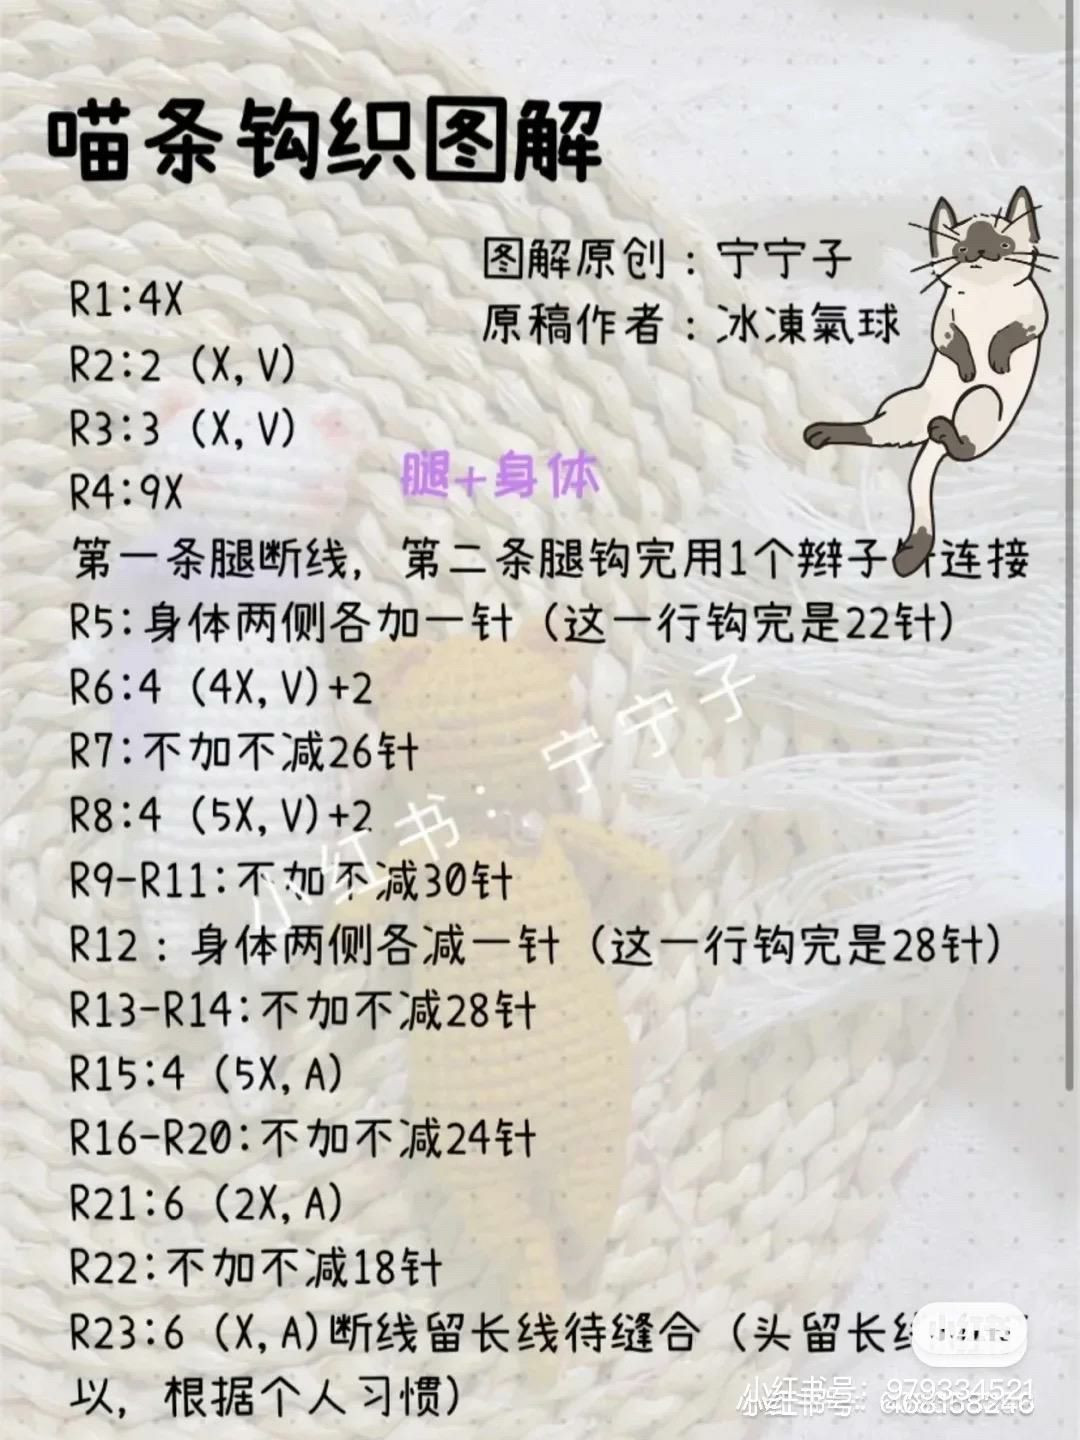 喵条钩织图解
图解原创：宁宁子
原稿作者：冰凍氣球
R1:4X
R2:2（X,V）
R3:3（X,V）
腿+身体
R4:9X
第一条腿断线，第二条腿钩完用1个辫子针连接
R5:身体两侧各加一针（这一行钩完是22针）
R6:4（4X,V)+2
R7:不加不减26针
R8:4（5X,V)+2
R9-R11:不加不减30针
R12：身体两侧各减一针（这一行钩完是28针）
R13-R14:不加不减28针
R15:4（5X,A）
R16-R20:不加不减24针
R21:6（2X,A）
R22:不加不减18针
R23:6（X,A)断线留长线待缝合（头留长线
以，根据个人习惯）
小红书：宁宁子
小红书
小红书号：